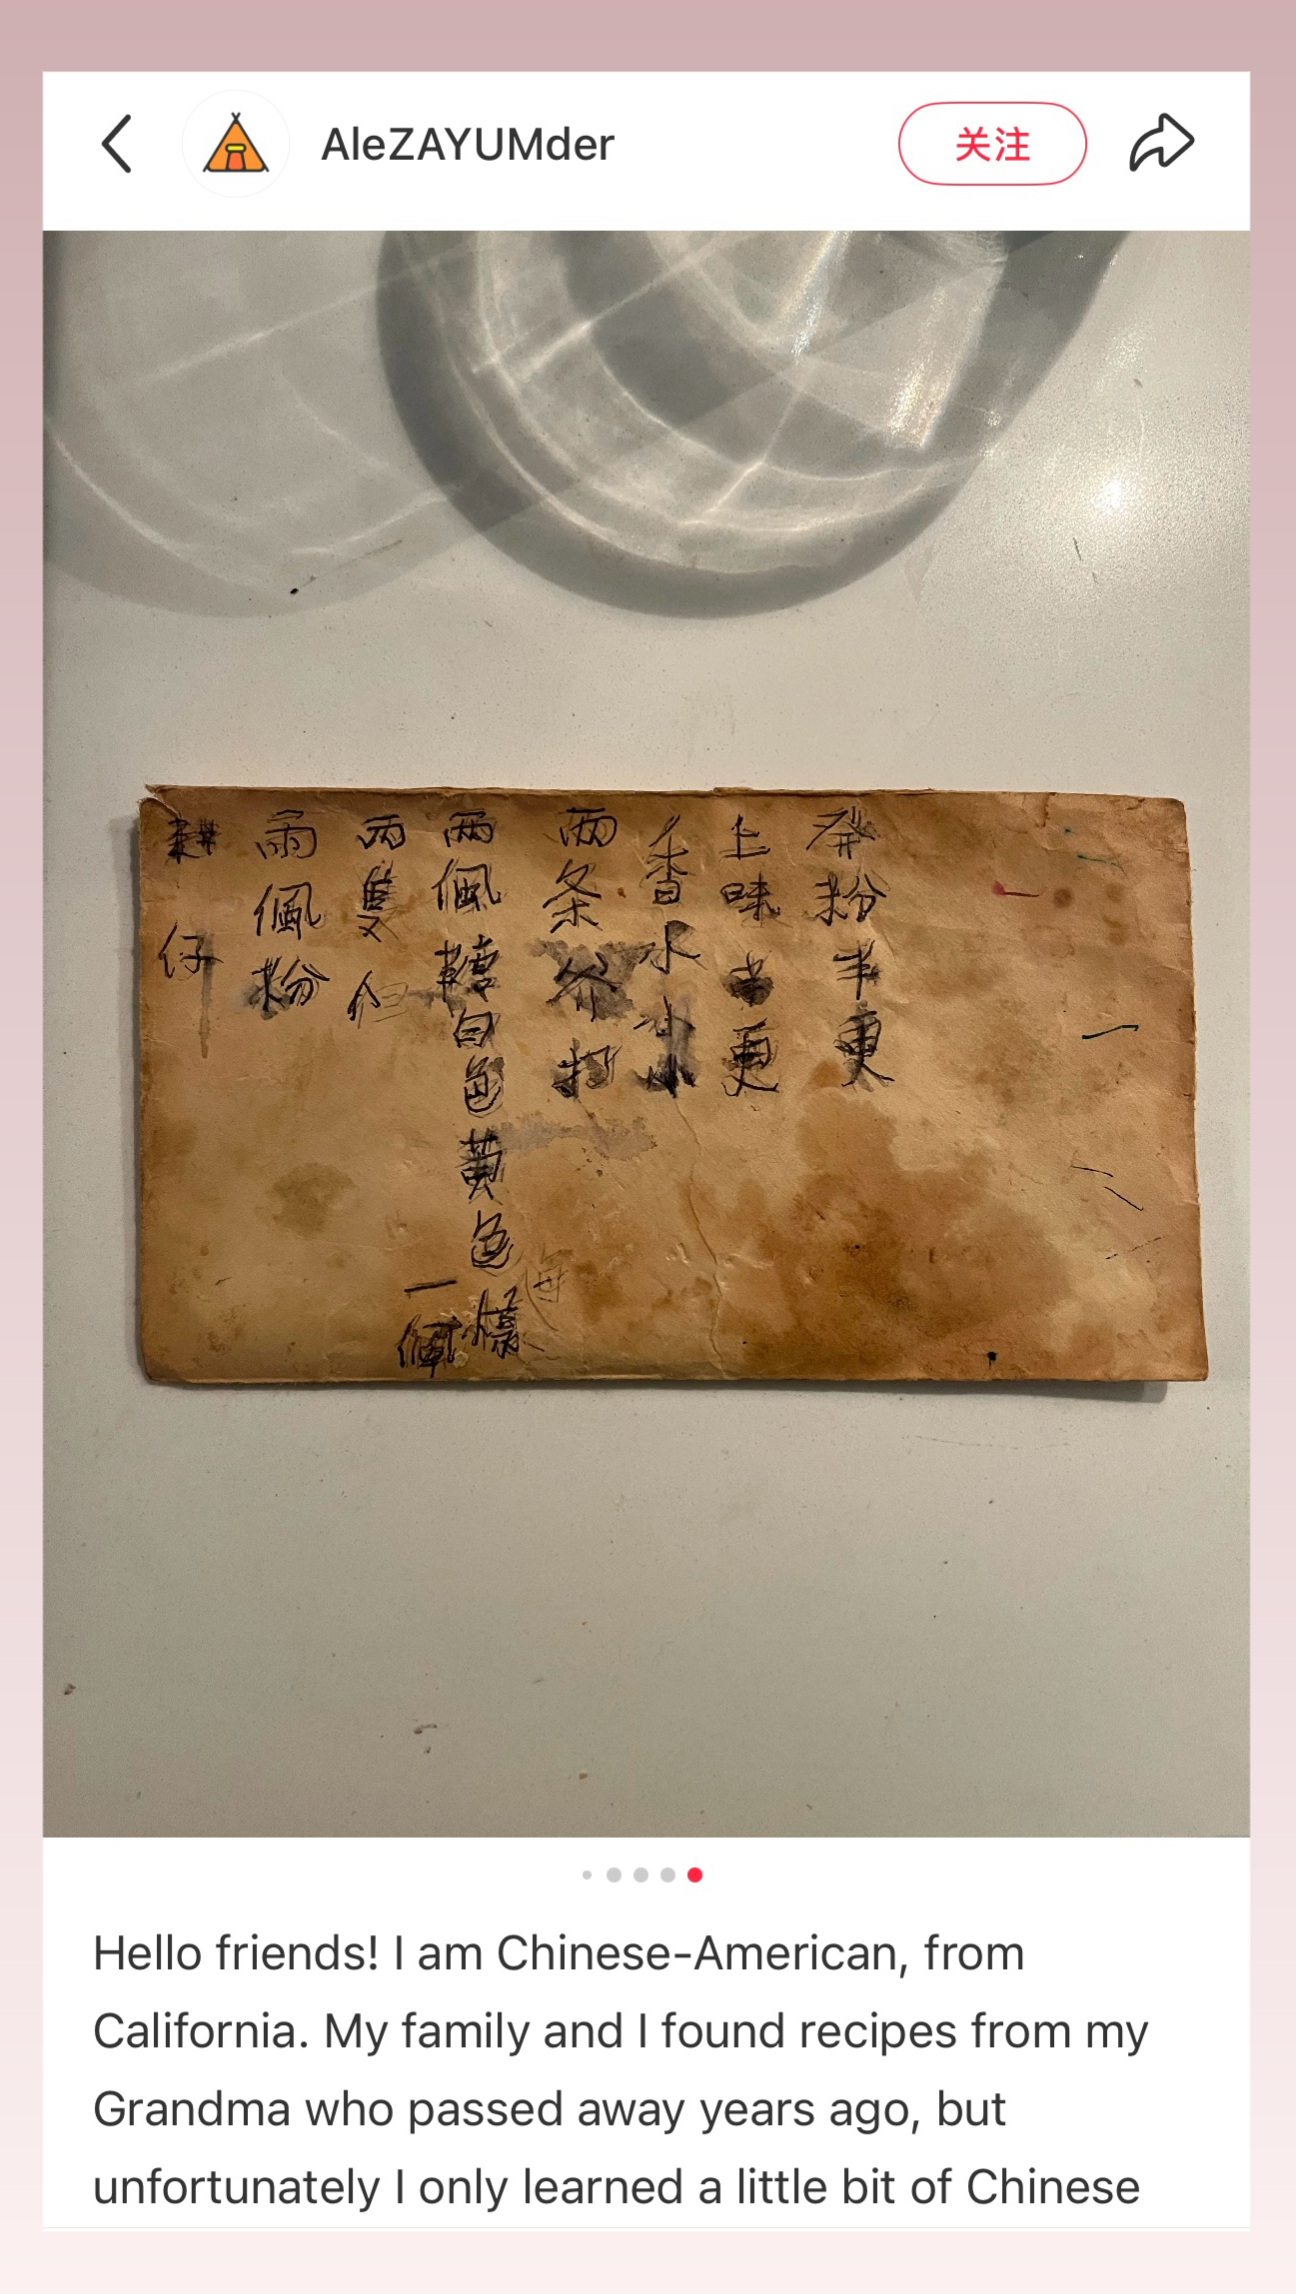 AleZAYUMder
关注
耕仔
兩佩粉
兩隻但
兩佩糖白色黄色每樣
一佩
兩条
香水小小
上味更
發粉半更
Hello friends! I am Chinese-American, from
California. My family and I found recipes from my
Grandma who passed away years ago, but
unfortunately I only learned a little bit of Chinese